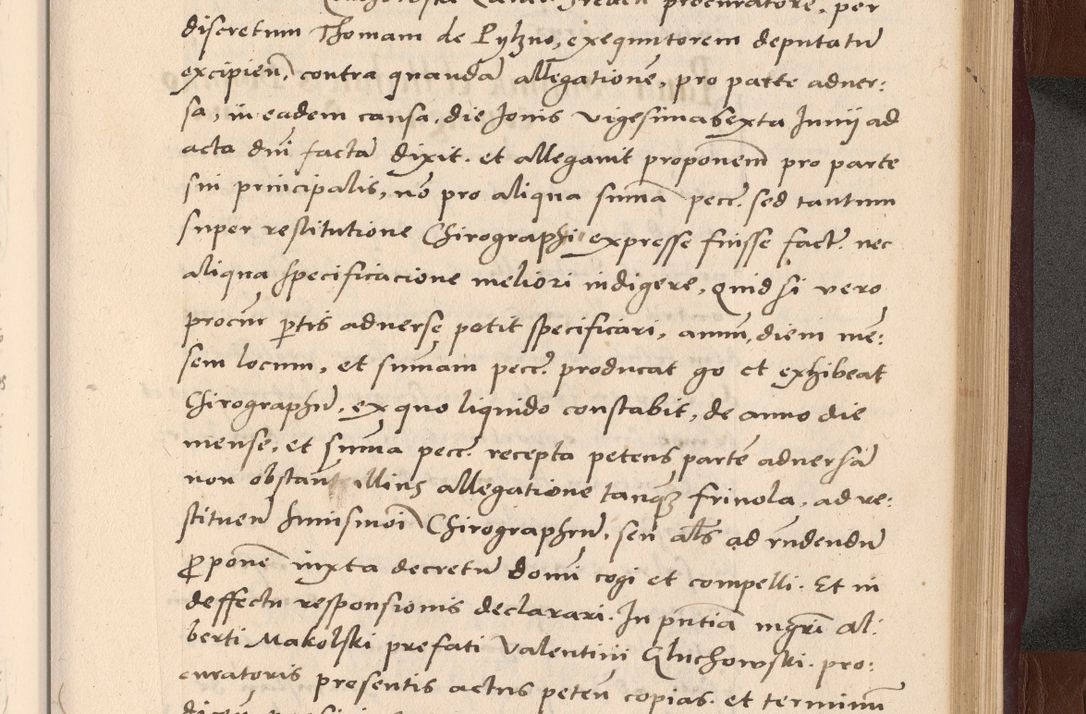 procuratore, per
discretum Thomam de Pylzno, exequutorem deputatũ
excipieñ, contra quandã allegationẽ, pro parte adver:
sa, in eadem causa, die Jovis vigesima sexta Junij ad
acta dñi factã dixit. et allegavit proponem̃ pro parte
sui principalis, nõ pro aliqua sum̃a pecc̃. sed tantum
super restitutione Chirographi expresse fuisse fact̃. nec
aliqua specificacione meliori indigere, Quid si vero
procur̃ p̃tis adversę petit specificari, annũ, diem me:
sem locum, et sum̃am pecc̃. producat g̊o et exhibeat
Chirographũ, ex quo liquido constabit, de anno die
mense, et sum̃a pecc̃. recepta petens partẽ adversã
non obstañ illius allegatione tanq̃ frivola, ad re:
stitueñ hmõi Chirographũ, seu al̃s ad rñdendũ
ꝓponẽ iuxta decretũ domi cogi et compelli. Et in
deffectu responsionis declarari. In pñtia mgr̃i Al:
berti Makolski prefati Valentini Gluchowski. pro:
curatoris presentis actus peteñ copias. et terminũ